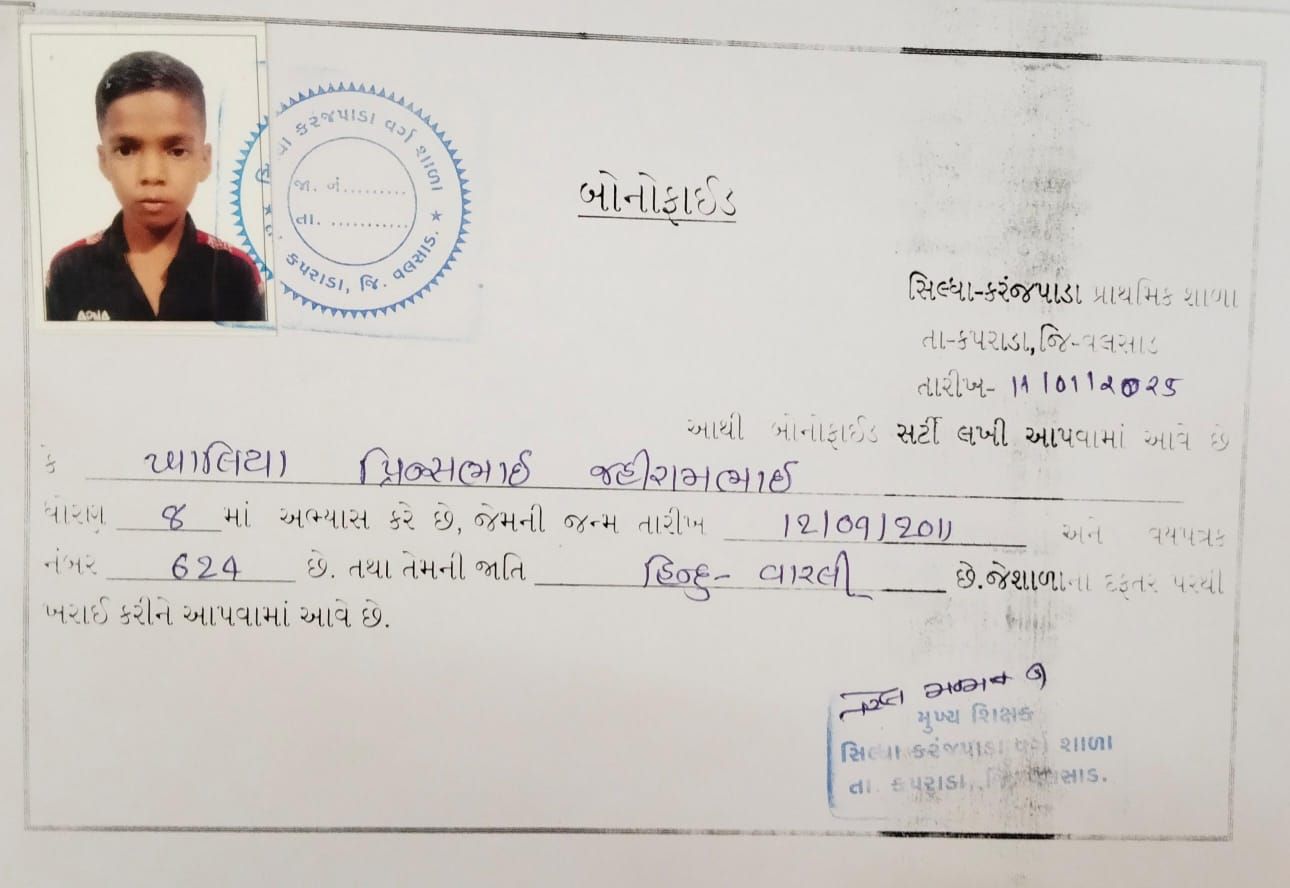 સિલ્ધા કરંજપાડા વર્ગ શાળા
જા. નં.........
તા. ...........
કપરાડા, જિ. વલસાડ.
બોનોફાઈડ
સિલ્ધા-કરંજપાડા પ્રાથમિક શાળા
તા-કપરાડા,જિ-વલસાડ
તારીખ- 11/01/2025
આથી બોનોફાઈડ સર્ટી લખી આપવામાં આવે છે
કે ખાલિયા પ્રિન્સભાઈ જહીરામભાઈ
ધોરણ ૪ માં અભ્યાસ કરે છે, જેમની જન્મ તારીખ 12/09/2011 અને વયપત્રક
નંબર 624 છે. તથા તેમની જાતિ હિન્દુ- વારલી છે.જેશાળાના દફતર પરથી
ખરાઈ કરીને આપવામાં આવે છે.
મુખ્ય શિક્ષક
સિલ્ધા કરંજપાડા વર્ગ શાળા
તા. કપરાડા, જિ. વલસાડ.